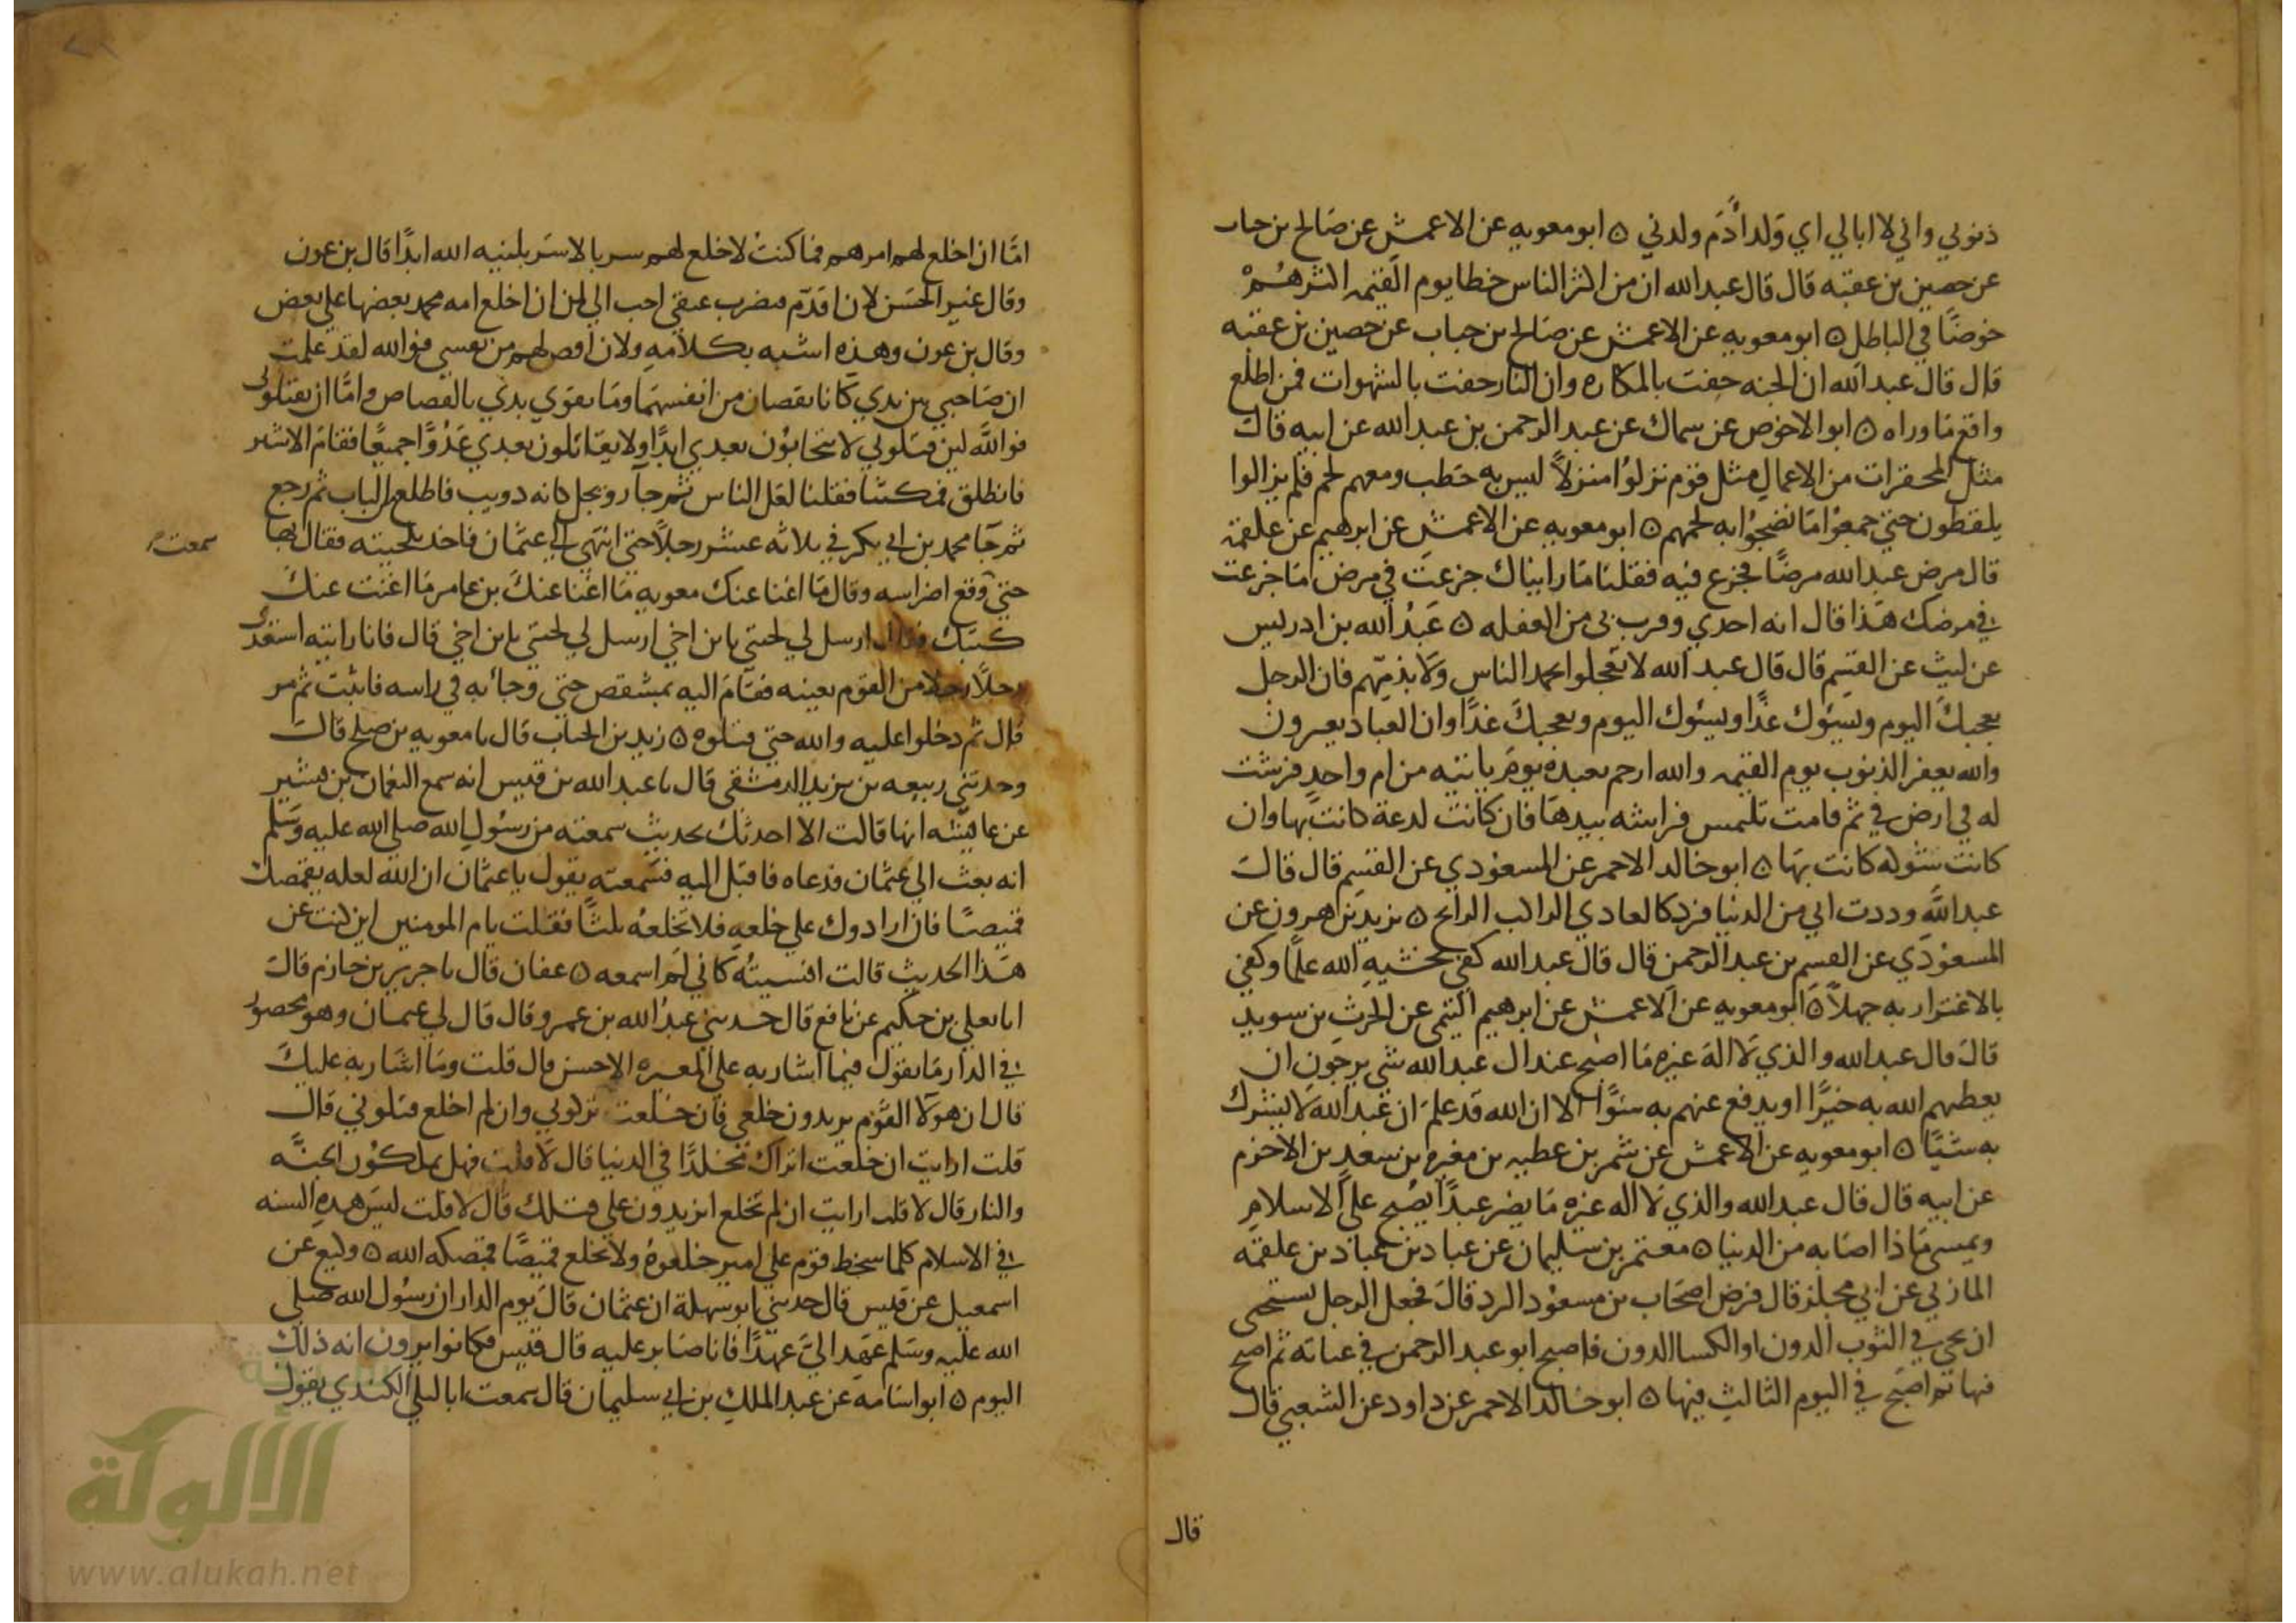 ذنوبي واني لا ابالي اي ولد آدم ولدني ٥ ابو معويه عن الاعمش عن صالح بن خباب
عن حصين بن عقبه قال قال عبد الله ان من اكثر الناس خطا يوم القيمه اكثرهم
خوضًا في الباطل ٥ ابو معويه عن الاعمش عن صالح بن خباب عن حصين بن عقبه
قال قال عبد الله ان الجنه حفت بالمكاره وان النار حفت بالشهوات فمن اطلع
واقع ما وراه ٥ ابو الاحوص عن سماك عن عبد الرحمن بن عبد الله عن ابيه قال
مثل المحقرات من الاعمال مثل قوم نزلوا منزلاً ليس به حطب ومعهم لحم فلم يزالوا
يلقطون حتي جمعوا ما نضجوا به لحمهم ٥ ابو معويه عن الاعمش عن ابرهيم عن علقمه
قال مرض عبد الله مرضًا فجزع فيه فقلنا ما رايناك جزعت في مرض ما جزعت
في مرضك هذا قال انه اخذي وقرب بي من الغفله ٥ عبد الله بن ادريس
عن ليث عن القسم قال قال عبد الله لا تعجلوا بحمد الناس ولا بذمهم فان الرجل
يعجبك اليوم ويسوك غدًا ويسوك اليوم ويعجبك غدًا وان العباد يعيرون
والله يغفر الذنوب يوم القيمه والله ارحم بعبده يوم ياتيه من ام واحد فرشت
له في ارض في ثم قامت تلتمس فراشه بيدها فان كانت لدغة كانت بها وان
كانت شوكه كانت بها ٥ ابو خالد الاحمر عن المسعودي عن القسم قال قال
عبد الله وددت اني من الدنيا فرد كالغادي الراكب الرائح ٥ يزيد بن هرون عن
المسعودي عن القسم بن عبد الرحمن قال قال عبد الله كفى بخشيه الله علمًا وكفي
بالاغترار به جهلاً ٥ ابو معويه عن الاعمش عن ابرهيم التيمي عن الحرث بن سويد
قال قال عبد الله والذي لا اله غيره ما اصبح عند ال عبد الله شي يرجون ان
يعطيهم الله به خيرًا او يدفع عنهم به سوًا الا ان الله قد علم ان عبد الله لا يشرك
به شيًا ٥ ابو معويه عن الاعمش عن شمر بن عطيه بن مغيره بن سعد بن الاخرم
عن ابيه قال قال عبد الله والذي لا اله غيره ما يضر عبدًا يصبح على الاسلام
ويمسي ماذا اصابه من الدنيا ٥ معتمر بن سليمان عن عباد بن عباد بن علقمه
المازني عن ابي مجلز قال قرض اصحاب بن مسعود البرد قال فجعل الرجل يستحي
ان يجي في الثوب الدون او الكسا الدون فاصبح ابو عبد الرحمن في عبايه ثم اصبح
فيها ثم اصبح في اليوم الثالث فيها ٥ ابو خالد الاحمر عن داود عن الشعبي قال
قال
اما ان اخلع لهم امرهم فما كنت لاخلع لهم سربالا سربلنيه الله ابدًا قال بن عون
وقال غير الحسن لان اقدم فتضرب عنقي احب الي من ان اخلع امه محمد بعضها علي بعض
وقال بن عون وهذه اشبه بكلامه ولان اقص لهم من نفسي فوالله لقد علمت
ان صاحبي بين يدي كانا يقصان من انفسهما وما يقوي بدني بالقصاص واما ان يقتلوني
فوالله لين قتلوني لا يتحابون بعدي ابدًا ولا يقاتلون بعدي عدوًا جميعًا فقام الاشتر
فانطلق فمكثنا فقلنا لعل الناس ثم جا رويجل كانه دويب فاطلع الباب ثم رجع
ثم جا محمد بن ابي بكر في ثلاثه عشر رجلاً حتي انتهي الي عثمان فاخذ بلحيته فقال بها
سمعت
حتي وقع اضراسه وقال ما اغنا عنك معويه ما اغنا عنك بن عامر ما اغنت عنك
كتبك فقال ارسل لي لحيتي يا بن اخي ارسل لي لحيتي يا بن اخي قال فانا رايته استعدى
رجلاً رجلا من القوم بعينه فقام اليه بمشقص حتي وجا به في راسه فاثبت ثم مر
قال ثم دخلوا عليه والله حتي قتلوه ٥ زيد بن الحباب قال نا معويه بن صلح قال
وحدثني ربيعه بن يزيد الدمشقي قال نا عبد الله بن قيس انه سمع النعمان بن بشير
عن عايشه انها قالت الا احدثك بحديث سمعته من رسول الله صلي الله عليه وسلم
انه بعث الي عثمان فدعاه فاقبل اليه فسمعته يقول يا عثمان ان الله لعله يقمصك
قميصًا فان ارادوك علي خلعه فلا تخلعه ثلثًا فقلت يا ام المومنين اين كنت عن
هذا الحديث قالت انسيته كاني لم اسمعه ٥ عفان قال نا جرير بن حازم قال
انا يعلي بن حكيم عن نافع قال حدثني عبد الله بن عمر وقال قال لي عثمان وهو محصور
في الدار ما تقول فيما اشار به علي المغيره الاخنس قال قلت وما اشار به عليك
قال ان هولا القوم يريدون خلعي فان خلعت تركوني وان لم اخلع قتلوني قال
قلت ارايت ان خلعت اتراك مخلدًا في الدنيا قال لا قلت فهل يملكون الجنه
والنار قال لا قلت ارايت ان لم تخلع ايزيدون علي قتلك قال لا قلت ليس هذه السنه
في الاسلام كلما سخط قوم علي امير خلعوه ولا تخلع قميصًا قمصكه الله ٥ وكيع عن
اسمعيل عن قيس قال حدثني ابو سهلة ان عثمان قال يوم الدار ان رسول الله صلي
الله عليه وسلم عهد الي عهدًا فانا صابر عليه قال قيس فكانوا يرون انه ذلك
اليوم ٥ ابو اسامه عن عبد الملك بن ابي سليمان قال سمعت ابا ليلي الكندي يقول
الألوكة
www.alukah.net